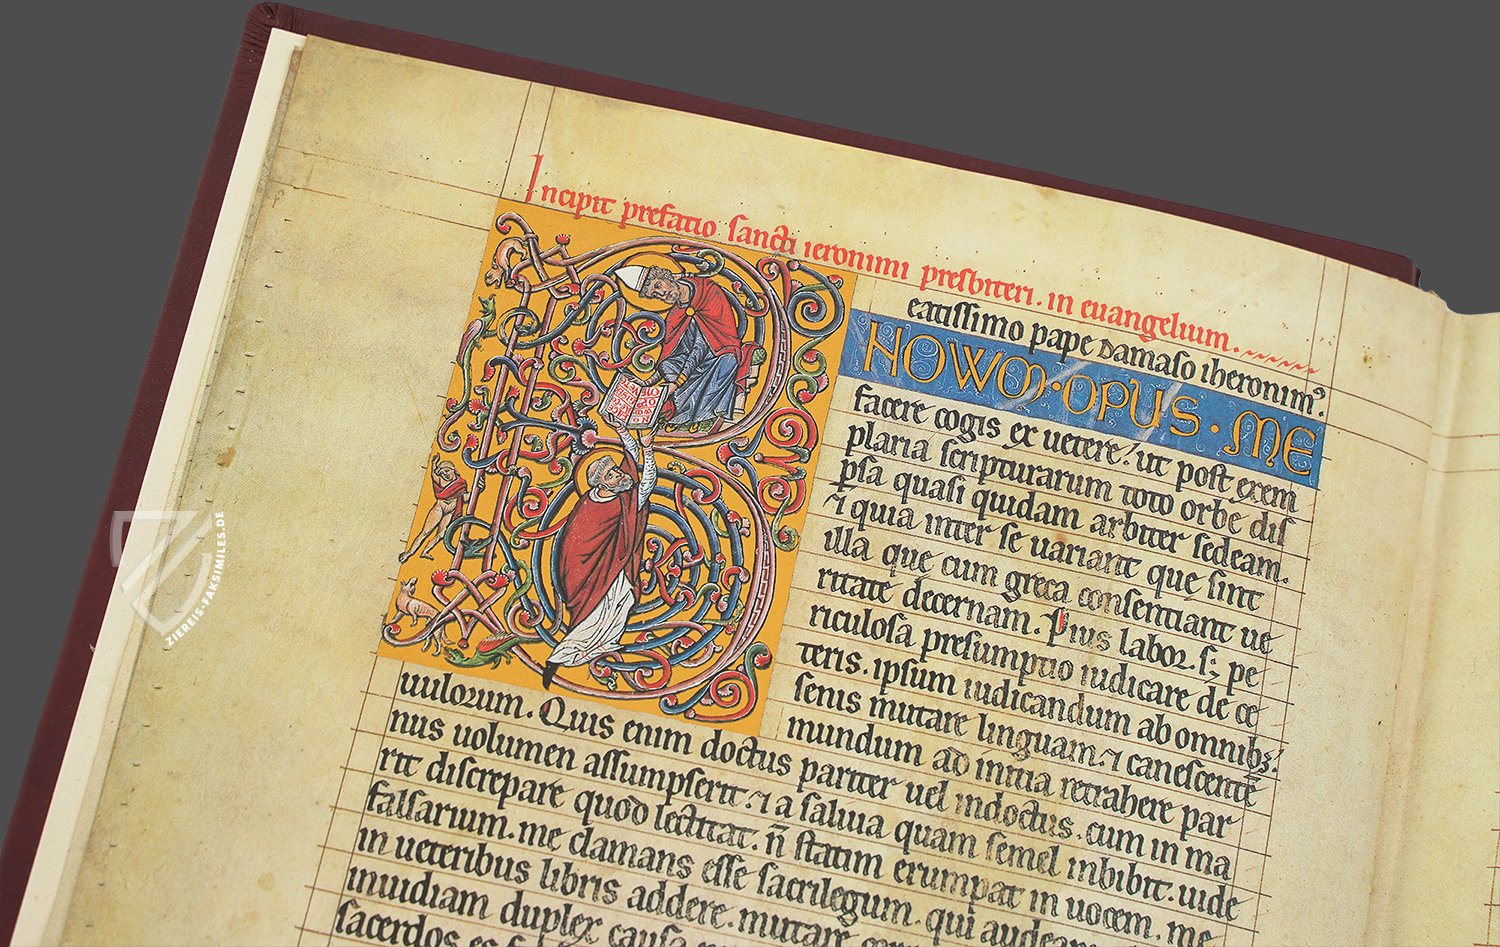 Incipit prefatio sancti ieronimi presbiteri. in euangelium.
eatissimo pape Damaso iheronimꝰ.
NOWM·OPUS·ME
facere cogis ex uetere! ut post exem
plaria scripturarum toto orbe dis
psa quasi quidam arbiter sedeam.
⁊ quia inter se uariant que sint
illa que cum greca consentiant ue
ritate decernam. Pius labor. sꝫ pe
riculosa presumptio iudicare de ce
teris. ipsum iudicandum ab omnibꝫ!
senis mutare linguam. ⁊ canescentē
mundum ad initia retrahere par
uulorum. Quis enim doctus pariter uel indoctus. cum in ma
nus uolumen assumpserit. ⁊ a saliua quam semel inbibit. uide
rit discrepare quod lectitat. n̄ statim erumpat in uocem. me
falsarium. me clamans esse sacrilegum. qui audeam
in ueteribus libris addere. mutare
inuidiam duplex causa
sacerdos es
ZIEREIS-FAKSIMILES.DE